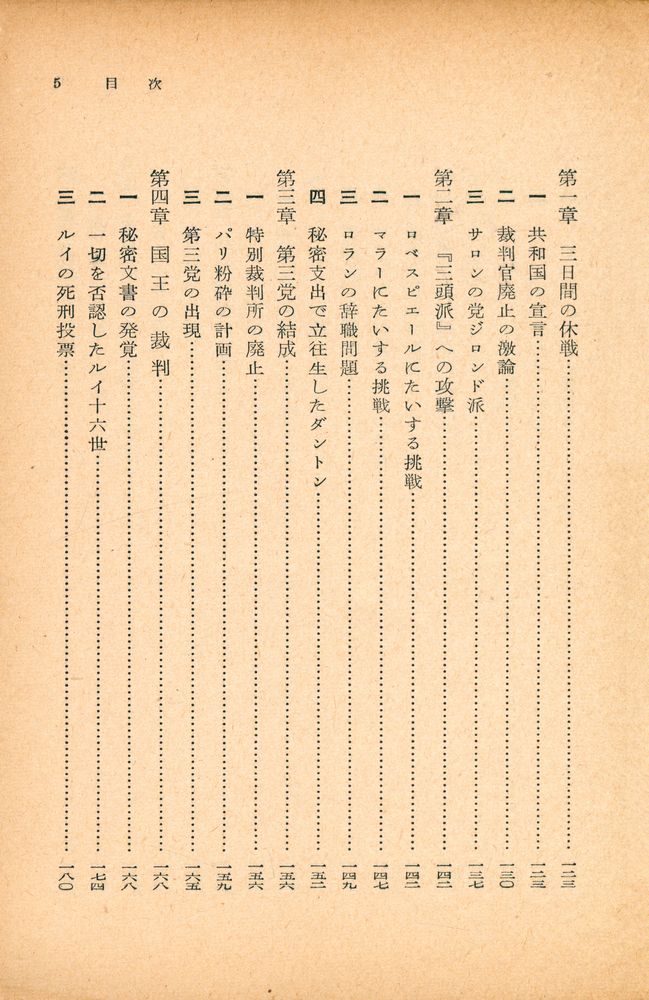 5　目次
第一章　三日間の休戦……一二三
一　共和国の宣言……一二三
二　裁判官廃止の激論……一三〇
三　サロンの党ジロンド派……一三七
第二章　『三頭派』への攻撃……一四二
一　ロベスピエールにたいする挑戦……一四二
二　マラーにたいする挑戦……一四七
三　ロランの辞職問題……一四九
四　秘密支出で立往生したダントン……一五二
第三章　第三党の結成……一五六
一　特別裁判所の廃止……一五六
二　パリ粉砕の計画……一五九
三　第三党の出現……一六五
第四章　国王の裁判……一六八
一　秘密文書の発覚……一六八
二　一切を否認したルイ十六世……一七四
三　ルイの死刑投票……一八〇